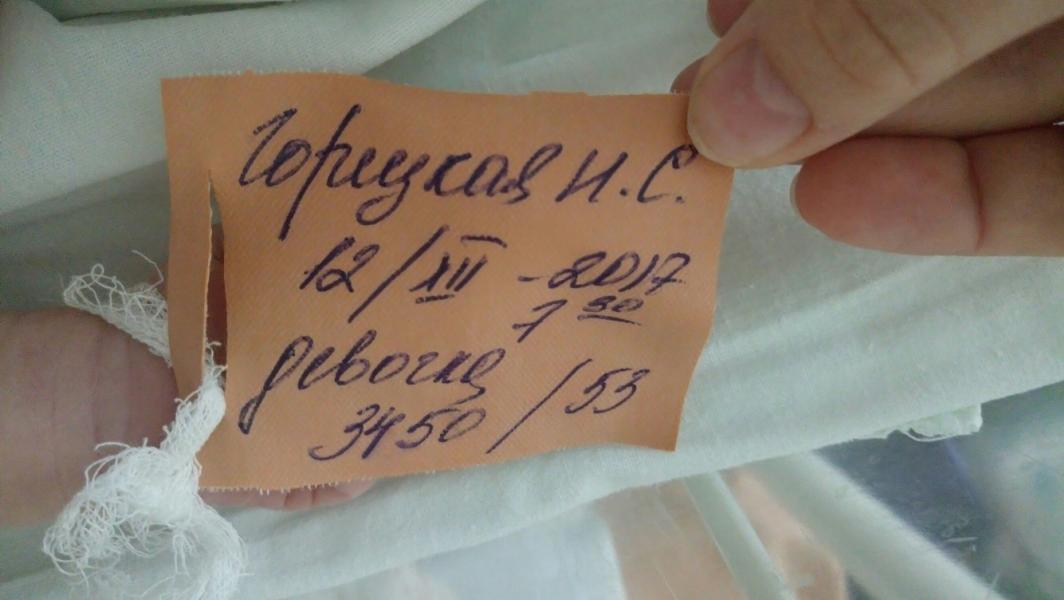 Горицкая Н.С.
12/XII - 2017
7 30
девочка
3450 / 53